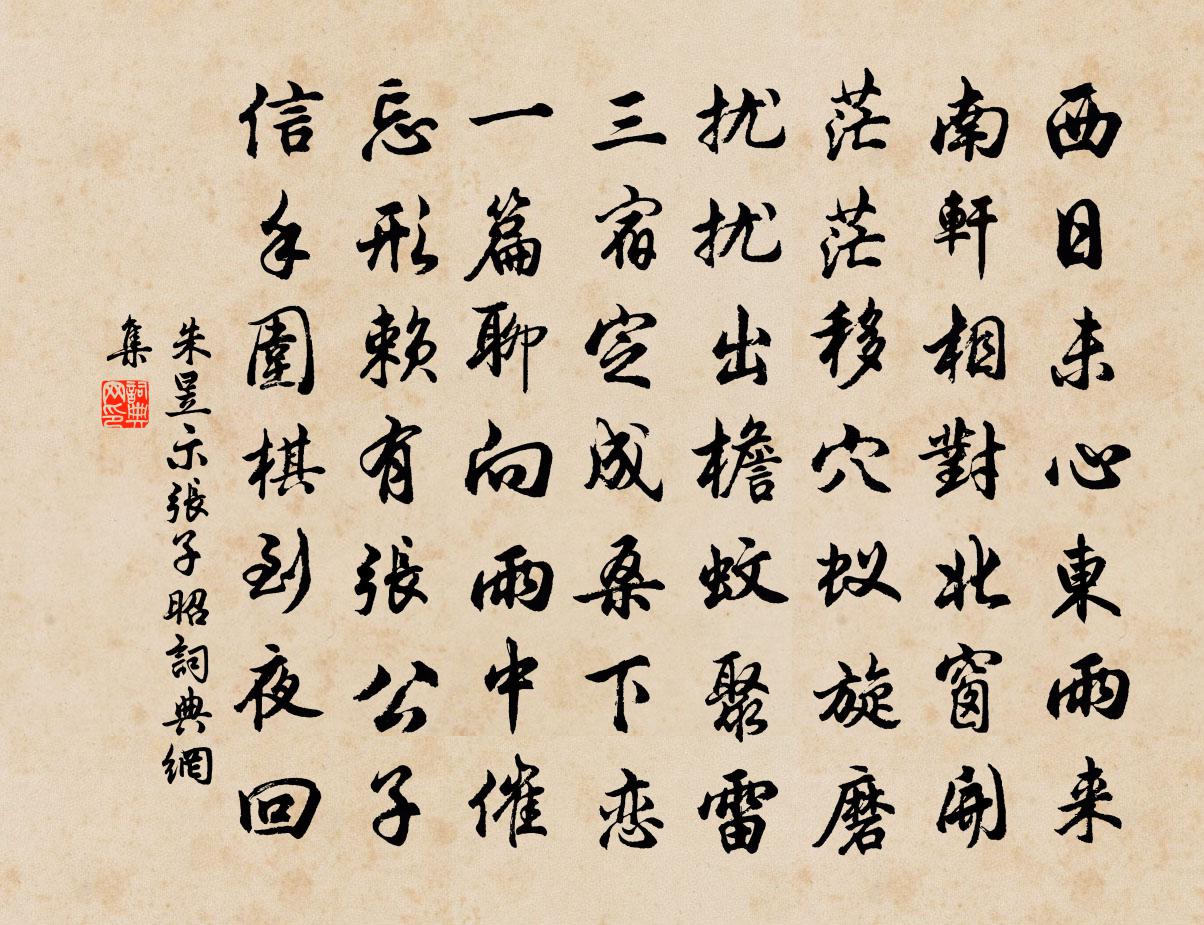 西日未心東雨来
南軒相對北窗開
茫茫移穴蚁旋磨
扰扰出檐蚊聚雷
三宿定成桑下恋
一篇聊向雨中催
忘形赖有張公子
信手圍棋到夜回
朱昱示張子昭詞典網
集
詞典网印